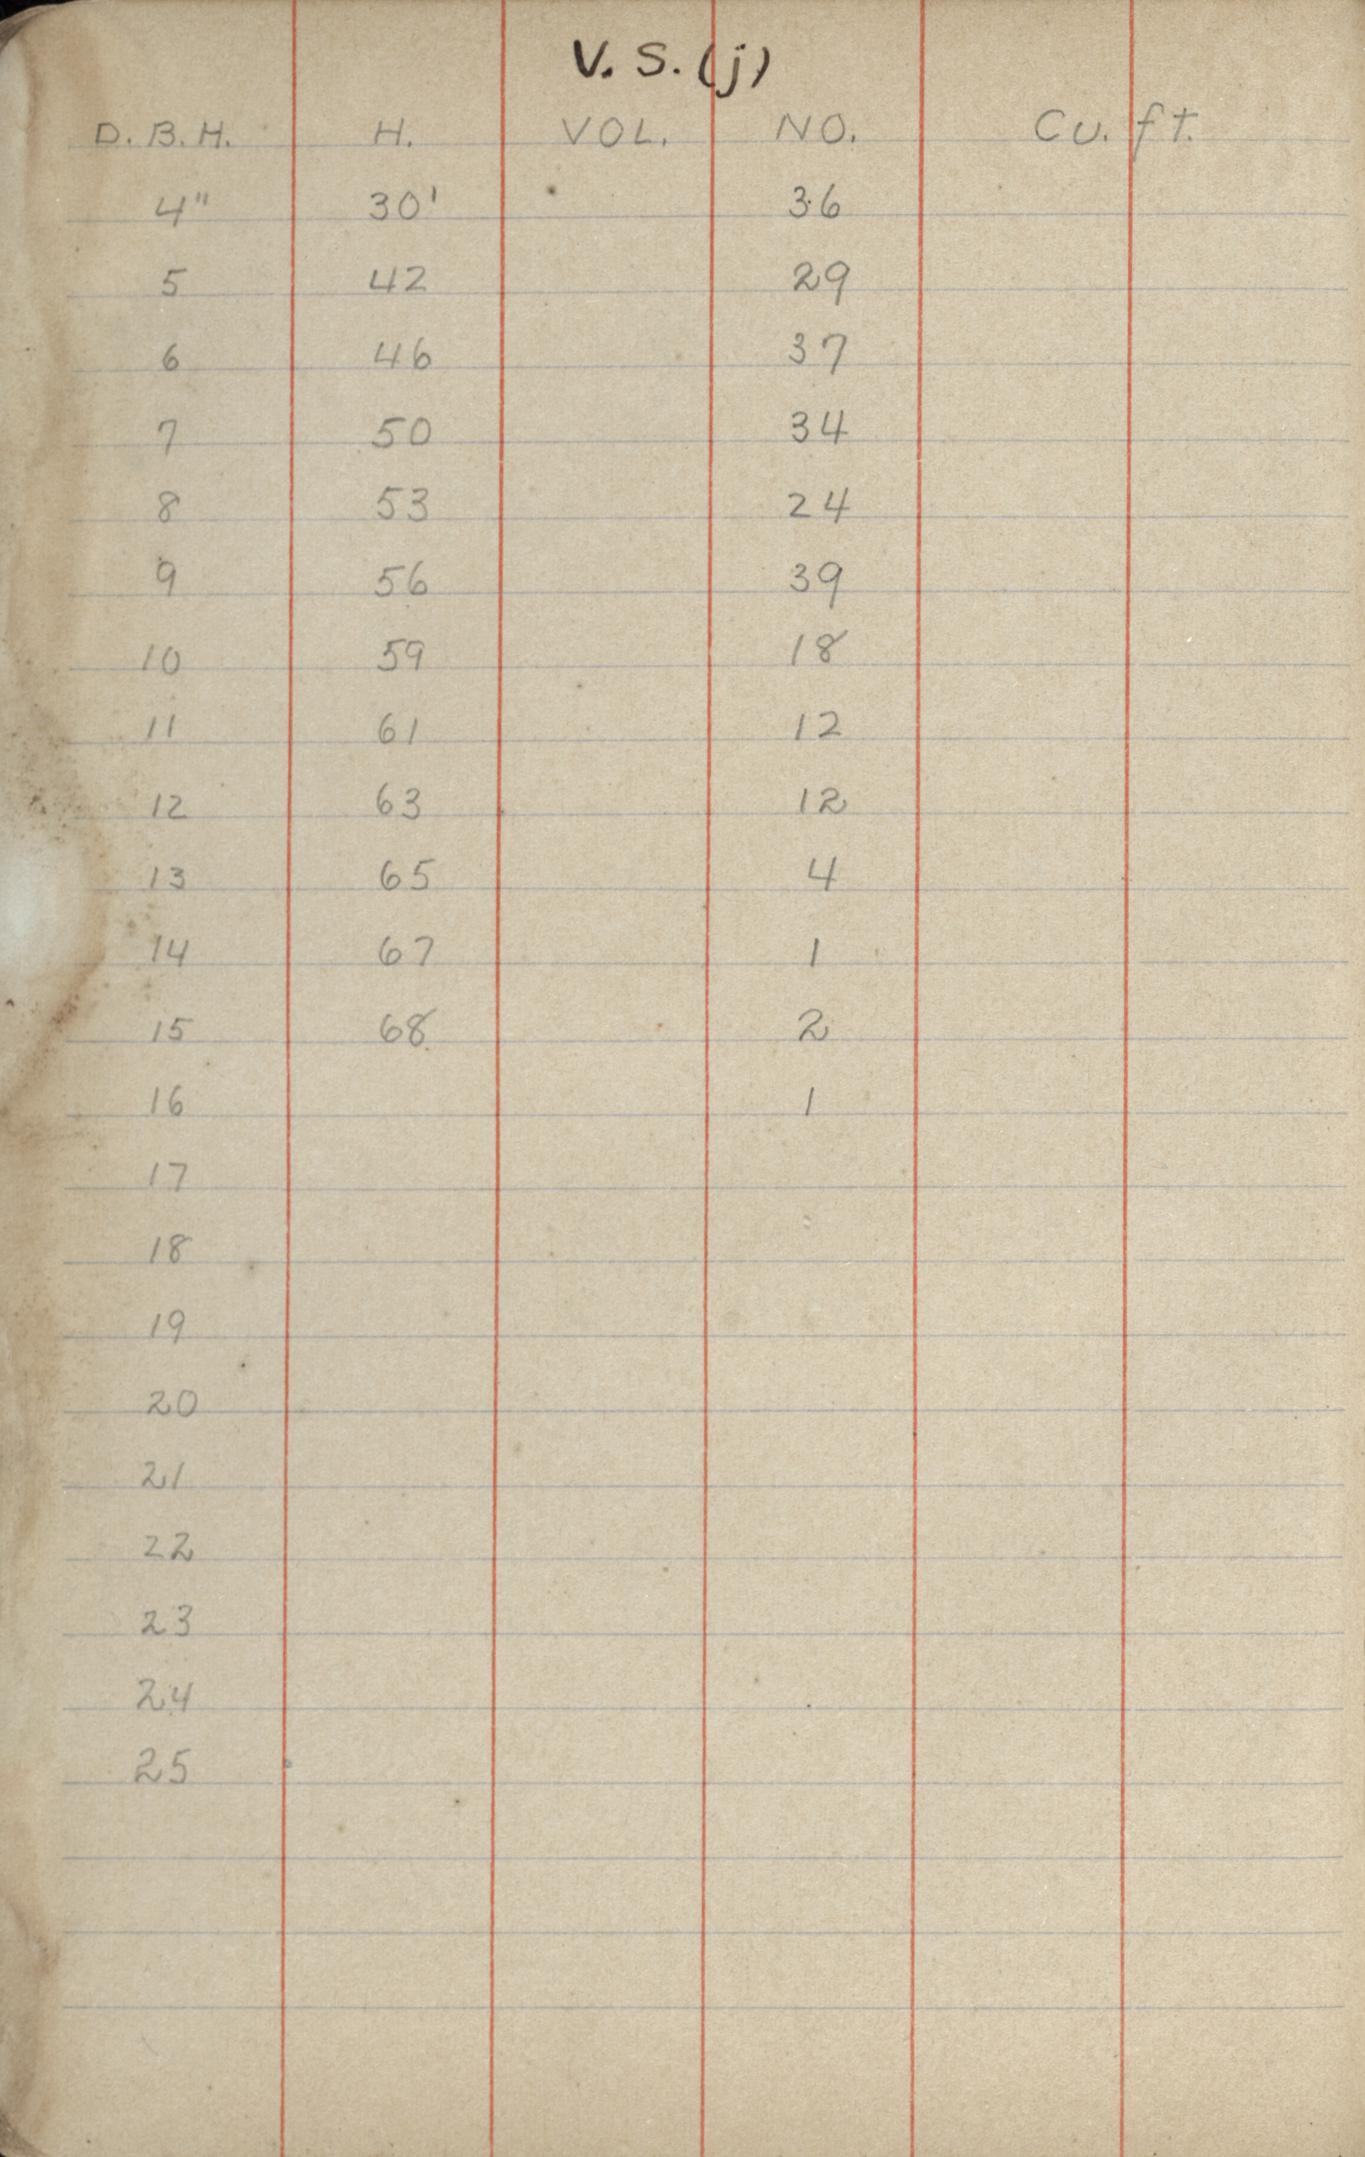 V. S. (j)
D. B. H. H. VOL. NO. Cu. ft.
4" 30' 36
5 42 29
6 46 37
7 50 34
8 53 24
9 56 39
10 59 18
11 61 12
12 63 12
13 65 4
14 67 1
15 68 2
16 1
17
18
19
20
21
22
23
24
25